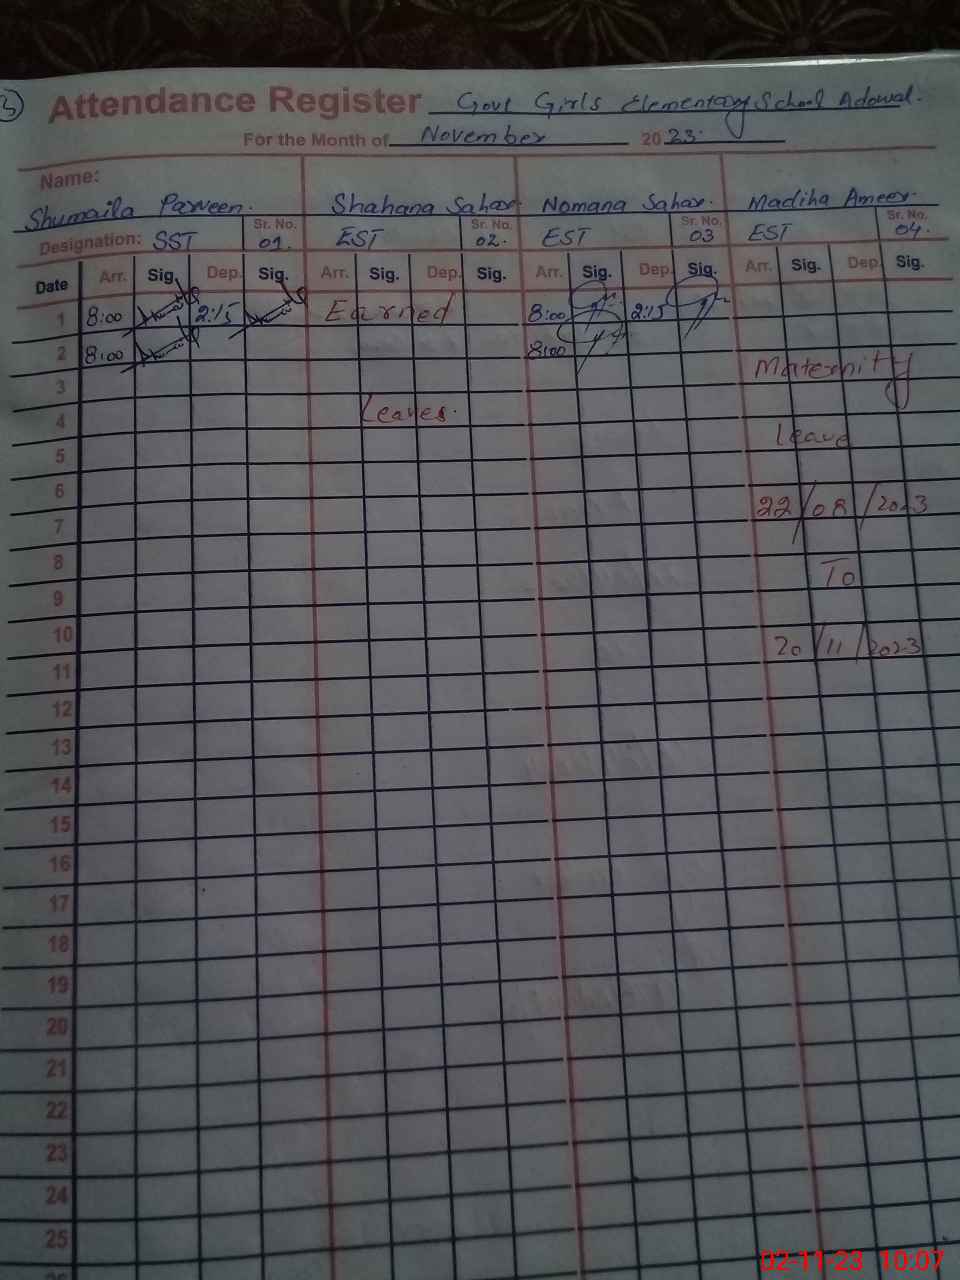 3
Attendance Register Govt Girls Elementary School Adowal.
For the Month of November 2023.
Name:
Shumaila Parveen. Shahana Sahar. Nomana Sahar. Madiha Ameer.
Designation: SST Sr. No. 01. EST Sr. No. 02. EST Sr. No. 03 EST Sr. No. 04.
Date Arr. Sig. Dep. Sig. Arr. Sig. Dep. Sig. Arr. Sig. Dep. Sig. Arr. Sig. Dep. Sig.
1 8:00 2:15 Earned 8:00 2:15
2 8:00 8:00
Maternity
3
4 Leaves.
Leave
5
6
22/08/2023
7
8
To
9
10
20/11/2023
11
12
13
14
15
16
17
18
19
20
21
22
23
24
25
02-11-23 10:07